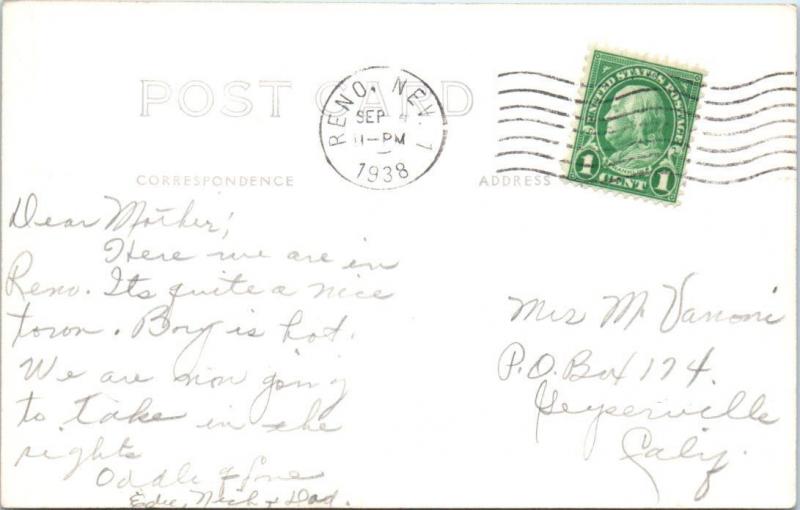 POST CARD
RENO, NEV. 1
SEP
11-PM
1938
UNITED STATES POSTAGE
1 CENT 1
CORRESPONDENCE
ADDRESS
Dear Mother;
Here we are in
Reno. Its quite a nice
town. Boy is hot.
We are now going
to take in the
sights
Oddle of love
Edie, Nick & Dad.
Mrs M Vanoni
P.O. Box 174.
Geyserville
Calif.